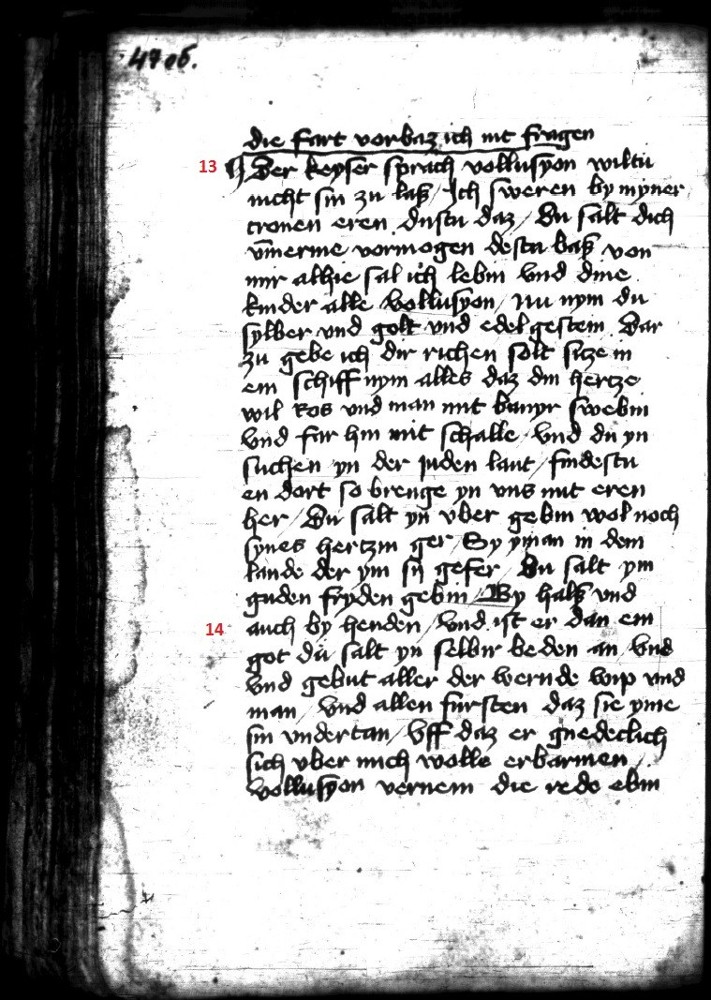 47 ob.
die fart vorbaz ich nit fragen
13 Der keyser sprach vollusyon wiltu
nicht sin zu laß / Ich sweren by myner
cronen eren dustu daz / Du salt dich
vmmerme vormogen destu baß von
mir alhie sal ich lebin vnd dine
kinder alle / vollusyon / nu nym du
sylber vnd golt vnd edel gestein Dar
zu gebe ich dir richen solt sitze in
ein schiff nym alles daz din hertze
wil ros vnd man mit banyr swebin
vnd far hin mit schalle / vnd du yn
suchen yn der juden lant / findestu
en dort so brenge yn vns mit eren
her / Du salt yn vber gebin wol noch
synes hertzin ger / Sy yman in dem
lande der ym sy gefer / Du salt ym
guden fryden gebin / By halß vnd
14 auch by henden / vnd ist er dan ein
got du salt yn selbir beden an / vnd
vnd gebut aller der wernde wip vnd
man / vnd allen fursten daz sie yme
sin vndertan / Vff daz er gnedeclich
sich vber mich wolle erbarmen /
vollusyon vernem die rede ebin